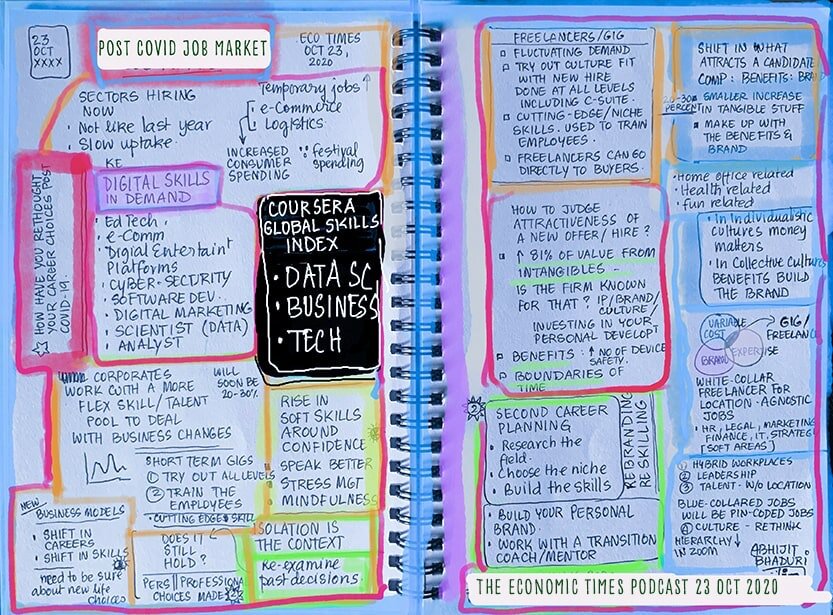 23
OCT
XXXX
POST COVID JOB MARKET
ECO TIMES
OCT 23,
2020
SECTORS HIRING
NOW
• Not like last year
• Slow uptake
Temporary jobs ↑
• e-Commerce
• Logistics
INCREASED
CONSUMER
SPENDING
∵ festival
spending
HOW HAVE YOU RETHOUGHT
YOUR CAREER CHOICES POST
COVID-19.
DIGITAL SKILLS
IN DEMAND
• Ed Tech
• e-Comm
• Digial Entertaint
Platforms
• CYBER-SECURITY
• SOFTWARE DEV.
• DIGITAL MARKETING
• SCIENTIST (DATA)
• ANALYST
COURSERA
GLOBAL SKILLS
INDEX
• DATA SC
• BUSINESS
• TECH
CORPORATES
WORK WITH A MORE
FLEX SKILL/TALENT
POOL TO DEAL
WITH BUSINESS CHANGES
WILL
SOON BE
20-30%
SHORT TERM GIGS
① TRY OUT ALL LEVELS
② TRAIN THE
EMPLOYEES
• CUTTING EDGE SKILL
RISE IN
SOFT SKILLS
AROUND
CONFIDENCE
SPEAK BETTER
STRESS MGT
MINDFULNESS
NEW
BUSINESS MODELS
• SHIFT IN
CAREERS
• SHIFT IN SKILLS
need to be sure
about new life
choices
DOES IT
STILL
HOLD?
PERS || PROFESSIONAL
CHOICES MADE
ISOLATION IS
THE CONTEXT
Re-examine
past decisions.
FREELANCERS/GIG
FLUCTUATING DEMAND
TRY OUT CULTURE FIT
WITH NEW HIRE
DONE AT ALL LEVELS
INCLUDING C-SUITE.
CUTTING-EDGE/NICHE
SKILLS. USED TO TRAIN
EMPLOYEES.
FREELANCERS CAN GO
DIRECTLY TO BUYERS.
HOW TO JUDGE
ATTRACTIVENESS OF
A NEW OFFER/HIRE?
↑ 81% OF VALUE FROM
INTANGIBLES
IS THE FIRM KNOWN
FOR THAT? IP/BRAND/
CULTURE/
INVESTING IN YOUR
PERSONAL DEVELOPT
BENEFITS: ↑ NO OF DEVICE
SAFETY.
BOUNDARIES OF
TIME
SECOND CAREER
PLANNING
• Research the
field.
• Choose the niche
• Build the skills
REBRANDING
RESKILLING
• BUILD YOUR PERSONAL
BRAND.
• WORK WITH A TRANSITION
COACH/MENTOR
SHIFT IN WHAT
ATTRACTS A CANDIDATE
COMP: BENEFITS: BRAND
PERCENT
SMALLER INCREASE
IN TANGIBLE STUFF
MAKE UP WITH
THE BENEFITS &
BRAND
• Home office related
• Health related
• fun related
• In Individualistic
cultures money
matters
• In Collective Cultures
BENEFITS BUILD
THE BRAND
VARIABLE
COST
BRAND
EXPERTISE
GIG/
FREELANCE
WHITE-COLLAR
FREELANCER FOR
LOCATION-AGNOSTIC
JOBS
• HR, LEGAL, MARKETING
FINANCE, IT, STRATEGY
[SOFT AREAS]
① HYBRID WORKPLACES
② LEADERSHIP
③ TALENT W/O LOCATION
BLUE-COLLARED JOBS
WILL BE PIN-CODED JOBS
④ CULTURE - RETHINK
HIERARCHY ↓
IN ZOOM
ABHIJIT
BHADURI
THE ECONOMIC TIMES PODCAST 23 OCT 2020